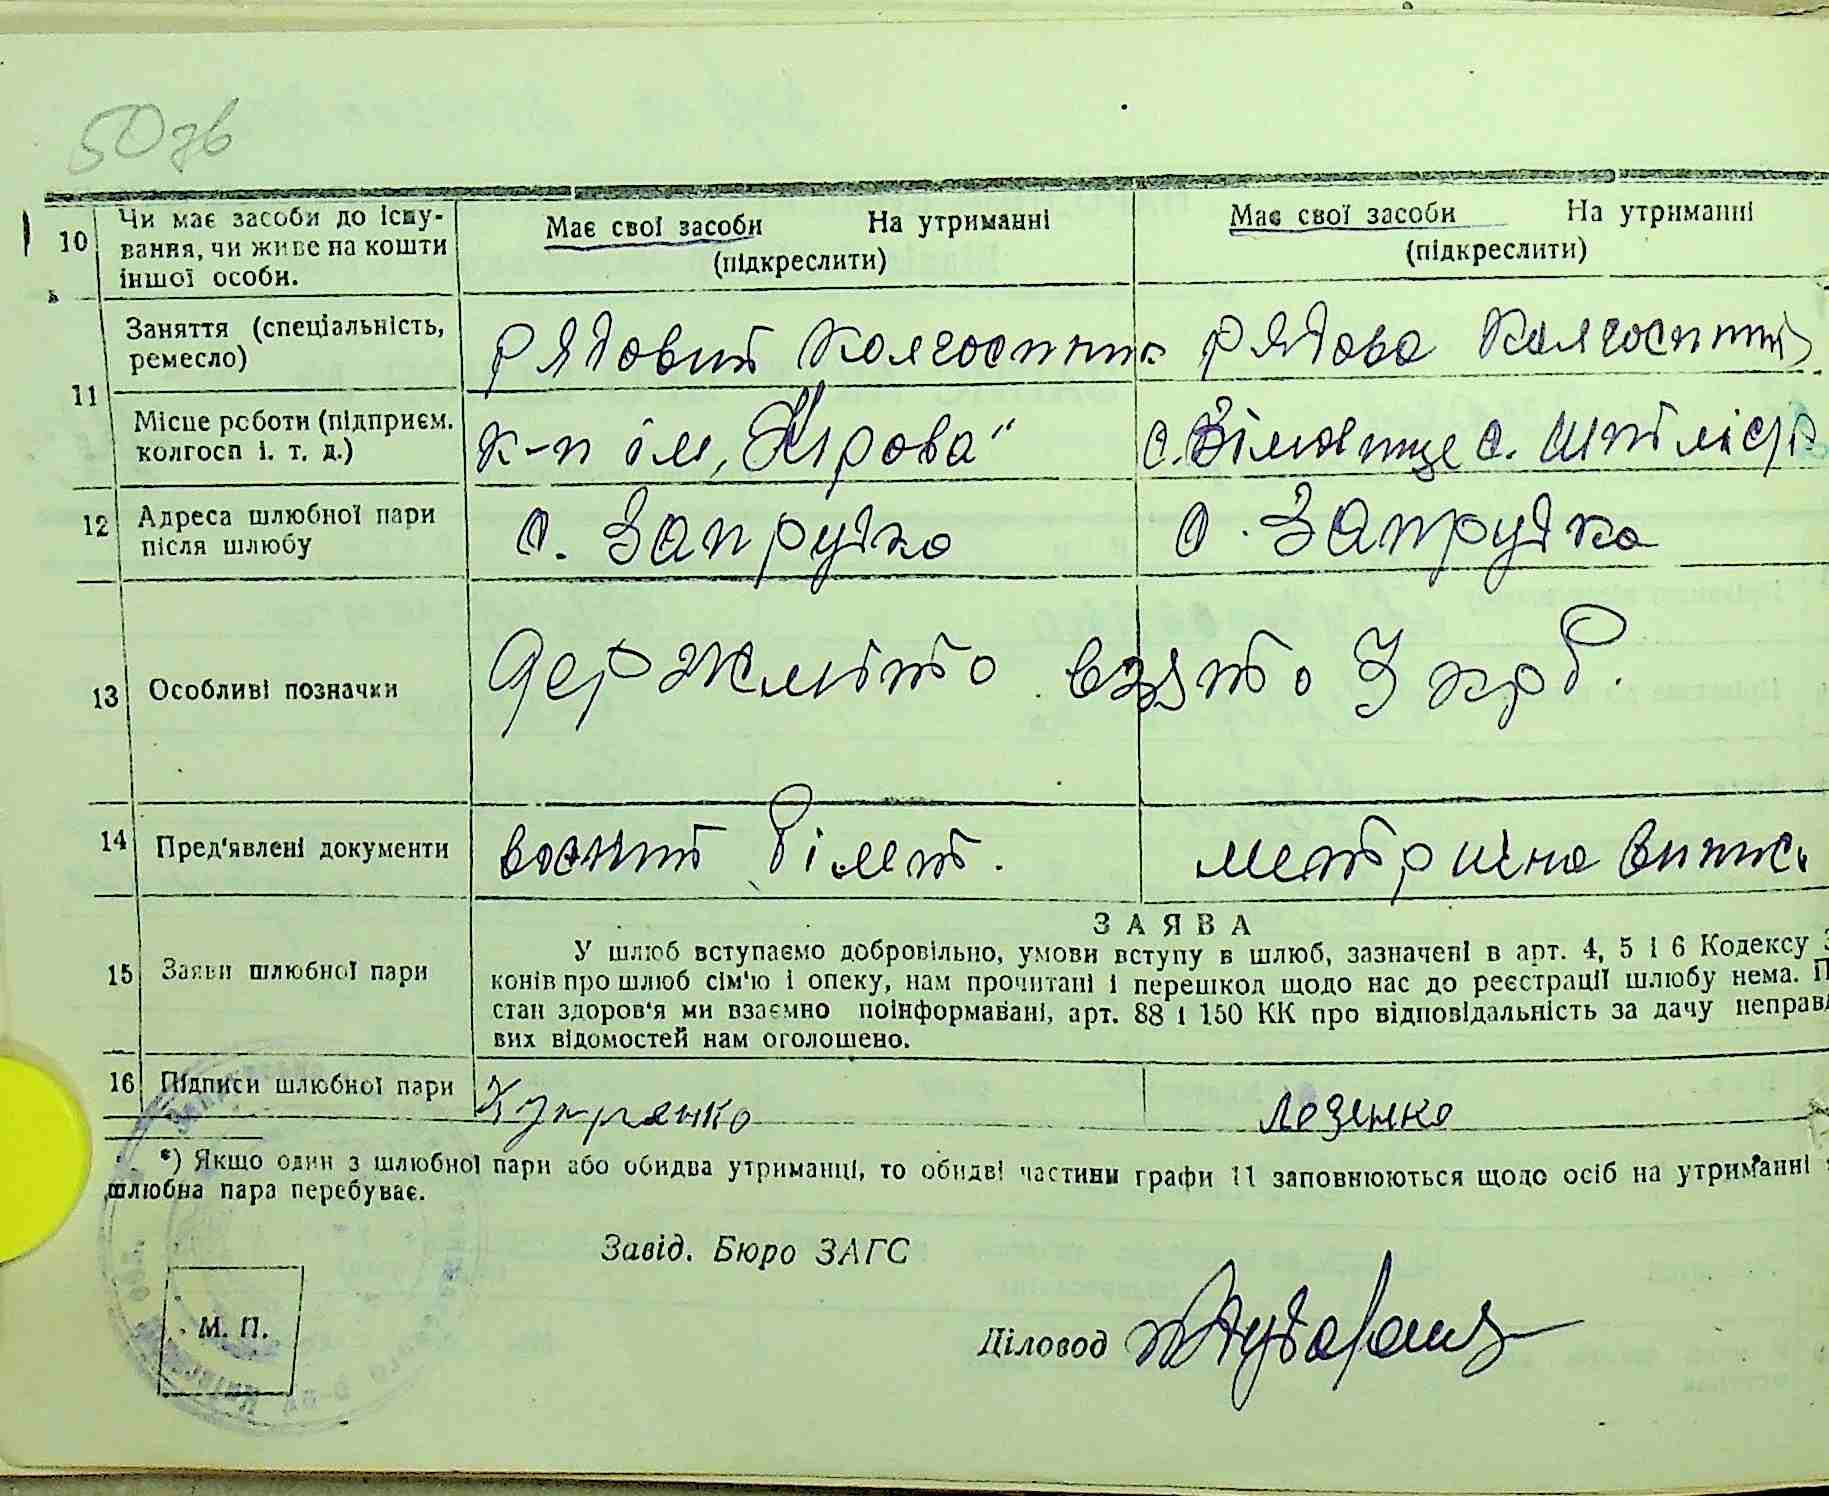 50 зв
10 Чи має засоби до існу-
вання, чи живе на кошти
іншої особи.
Має свої засоби На утриманні
(підкреслити)
Має свої засоби На утриманні
(підкреслити)
11 Заняття (спеціальність,
ремесло)
рядовий колгоспник
рядова колгоспниц
Місце роботи (підприєм.
колгосп і. т. д.)
к-п ім. „Кірова"
12 Адреса шлюбної пари
після шлюбу
с. Запрудка
с. Запрудка
13 Особливі позначки
держмито взято 3 крб.
14 Пред'явлені документи
воєнний білет.
метрична випис.
15 Заяви шлюбної пари
ЗАЯВА
У шлюб вступаємо добровільно, умови вступу в шлюб, зазначені в арт. 4, 5 і 6 Кодексу З
конів про шлюб сім'ю і опеку, нам прочитані і перешкод щодо нас до реєстрації шлюбу нема. П
стан здоров'я ми взаємно поінформавані, арт. 88 і 150 КК про відповідальність за дачу неправд
вих відомостей нам оголошено.
16 Підписи шлюбної пари
Купрієнко
Лозенко
*) Якщо один з шлюбної пари або обидва утриманці, то обидві частини графи 11 заповнюються щодо осіб на утриманні
шлюбна пара перебуває.
Завід. Бюро ЗАГС
М. П.
Діловод